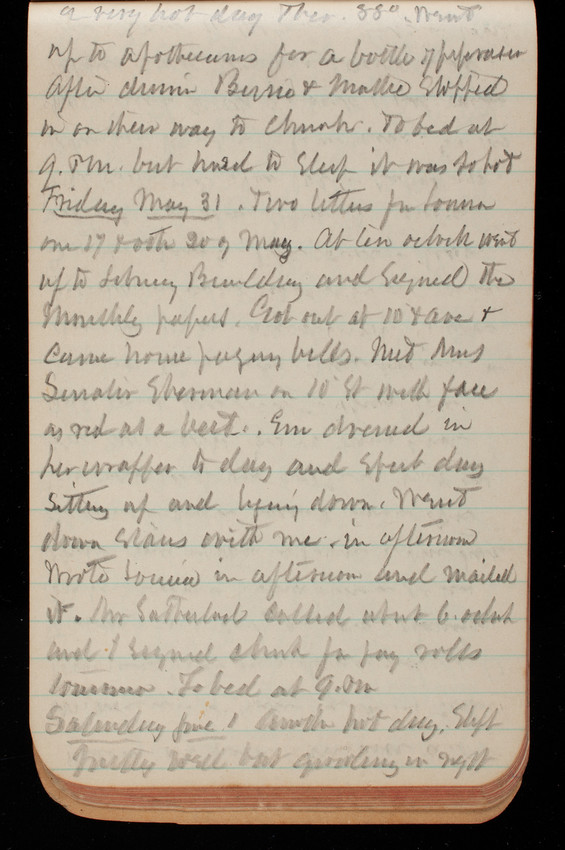 a very hot day Ther. 88°. Went
up to apothecaries for a bottle of
After dinner Bernie & Mattie stopped
in on their way to Church. To bed at
9. P.M. but hard to sleep it was so hot
Friday May 31. Two letters fm Louisa
one 17 & 20 of May. At ten oclock went
up to Building and signed the
Monthly papers. Got out at 10 & ave &
came home paying bills. Met Mrs
Senator Sherman on 10 St with face
as red as a beet. Em dressed in
her wrapper to day and spent day
sitting up and lying down. Went
down stairs with me in afternoon
Wrote Louisa in afternoon and mailed
it. Mr Sutherland called about 6 oclock
and I signed check for pay rolls
tomorrow. To bed at 9. P.M
Saturday June 1 Another hot day. Slept
pretty well but in night